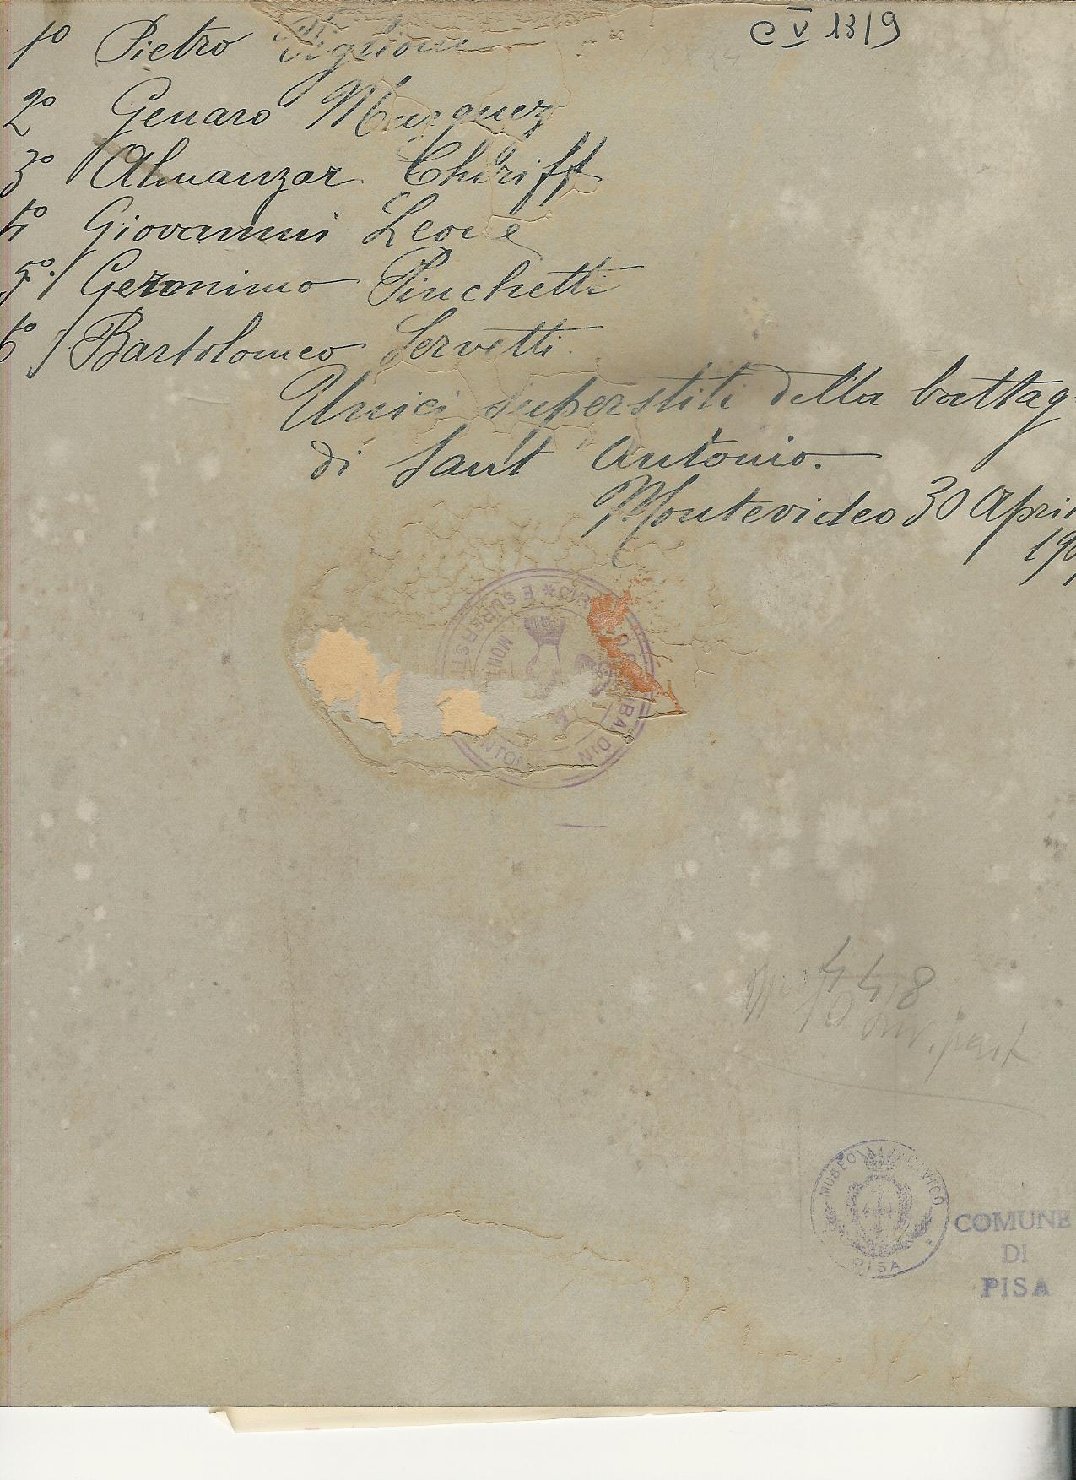 C V 13/9
1º Pietro Viglione
2º Genaro Marquez
3º Almanzar Chiriff
4º Giovanni Leone
5º Geronimo Pinchetti
6º Bartolomeo Servetti
Unici superstiti della battag
di Sant Antonio.
Montevideo 30 Apri
190
E SUPERSTI
MON
448
MUSEO
PISA
COMUNE
DI
PISA